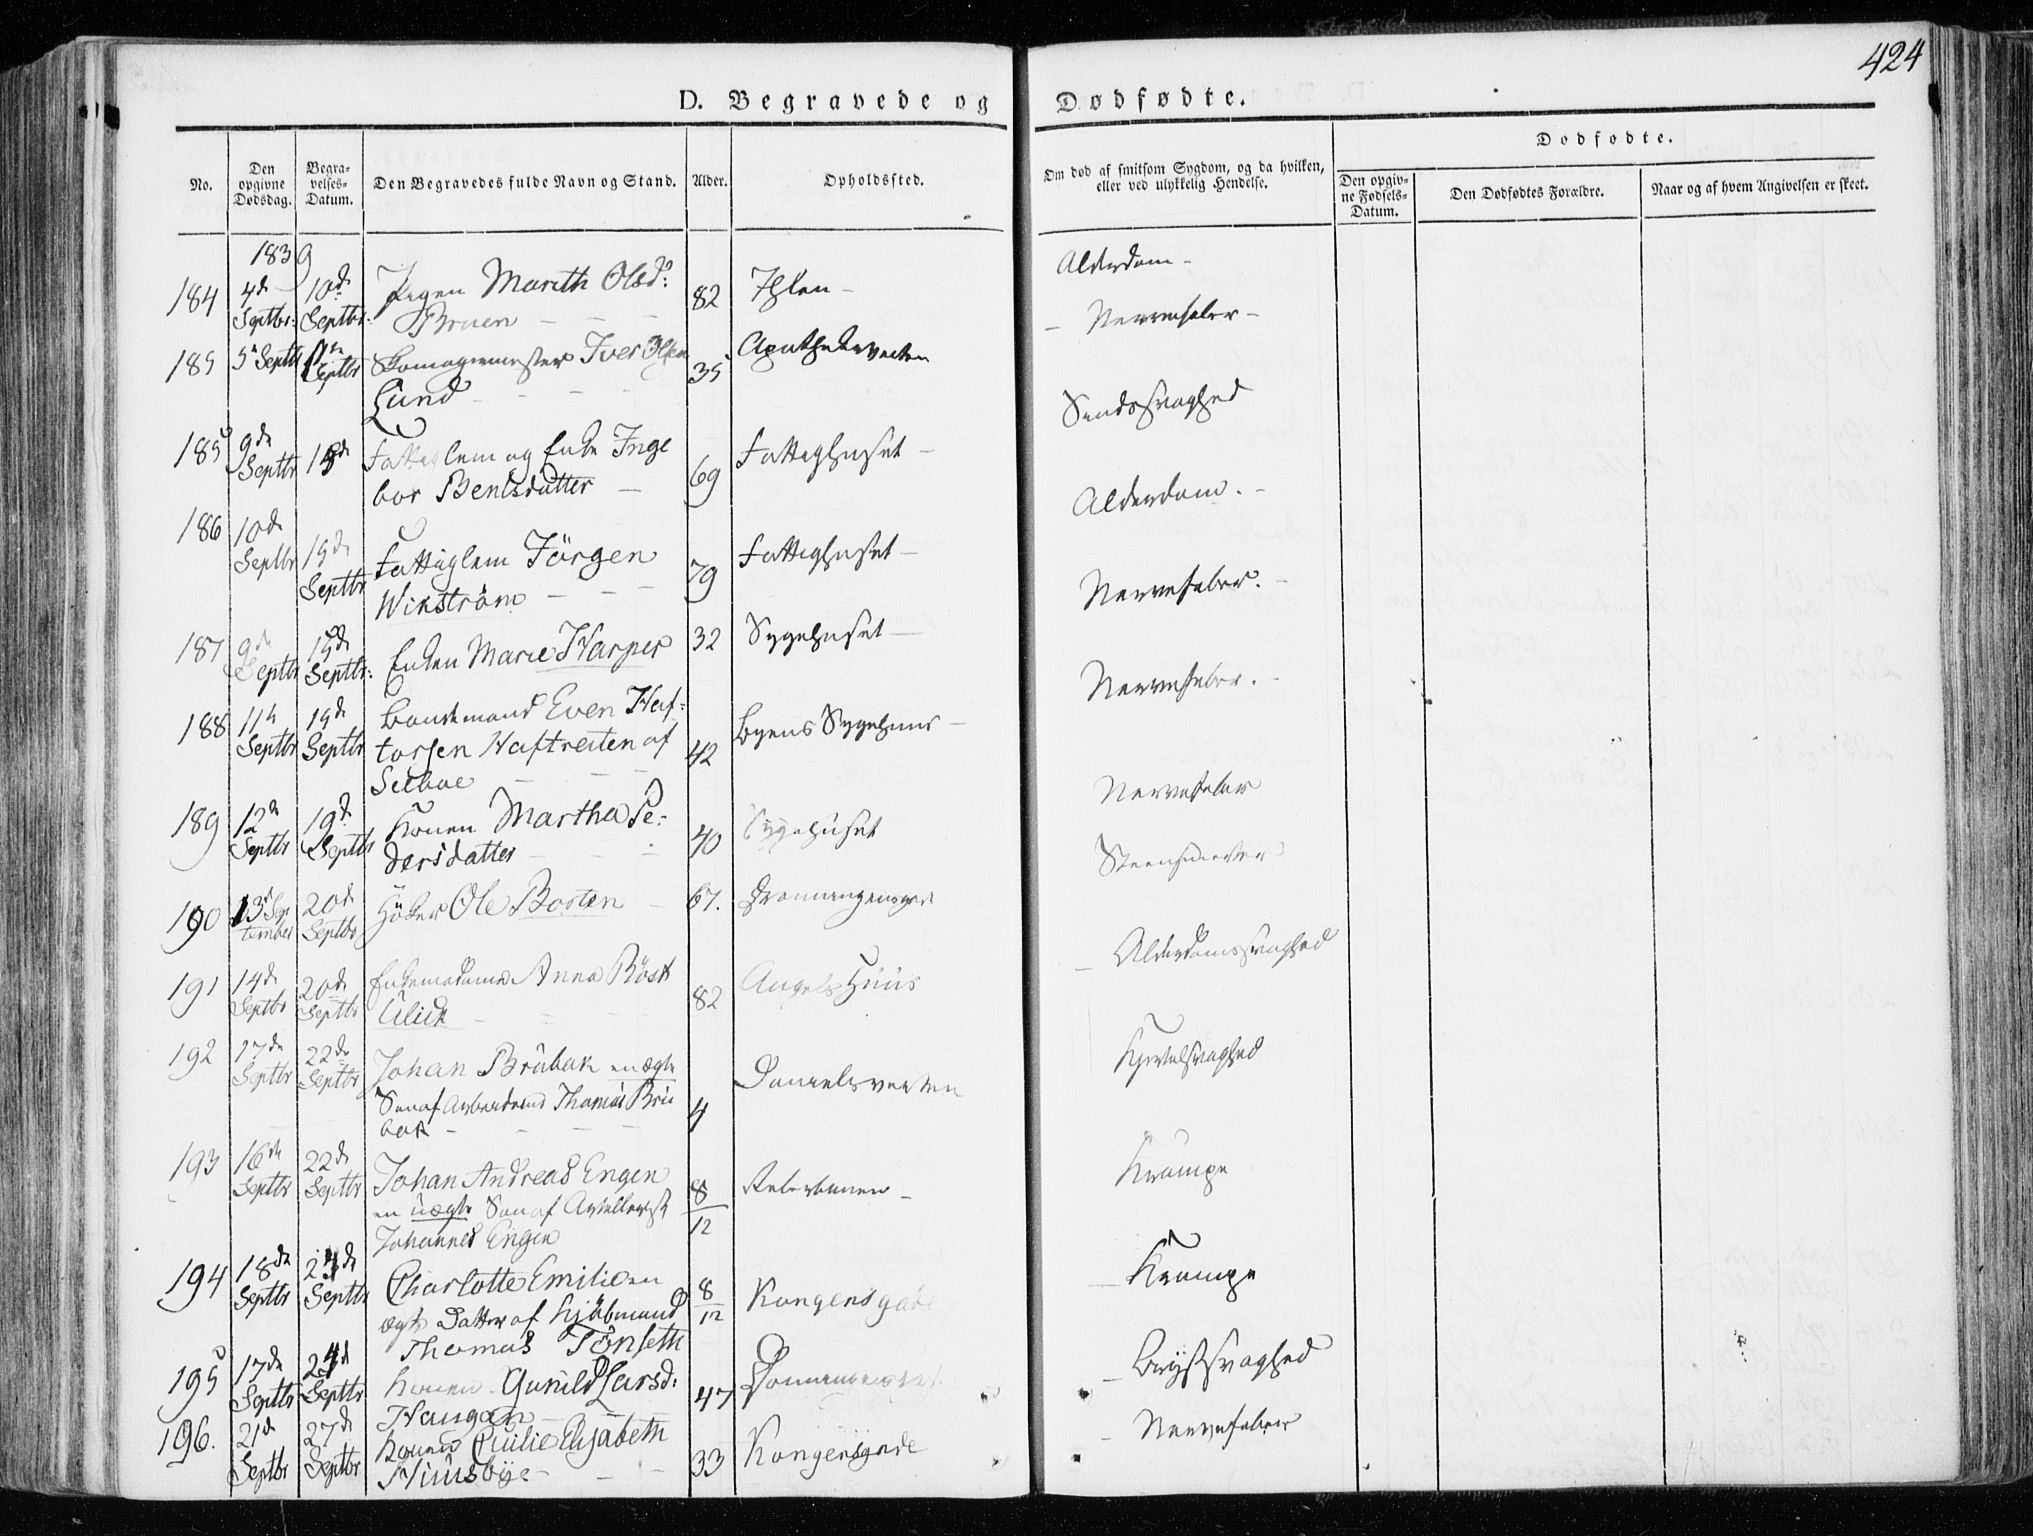 424
D. Begravede og Dødfødte.
No.
Den opgivne Dødsdag.
Begravelses-Datum.
Den Begravedes fulde Navn og Stand.
Alder.
Opholdssted.
Om død af smitsom Sygdom, og da hvilken,
eller ved ulykkelig Hendelse.
Dødfødte.
Den opgivne Fødsels-Datum.
Den Dødfødtes Forældre.
Naar og af hvem Angivelsen er skeet.
1839
184 4de Septbr: 10de Septbr. Pigen Marith Olsd: 82 Ihlen - Alderdom -
Bruen
185 5te Septb 11te Septbr Skomagermester Iver Olsen 35 Nervefeber -
Lund
185 9de Septbr 15de Fattiglem og Enke Inge 69 Fattighuset - Sindssvaghed
bor Bentsdatter
186 10de Septbr 15de Septbr Fattiglem Jörgen 79 Fattighuset - Alderdom. -
Wikström
187 9de Septbr 15de Septbr: Enken Marie Harper 32 Sygehuset - Nervefeber. -
188 11te Septbr 15de Septbr Bondemand Even Haf= 42 Byens Sygehuus - Nervefeber. -
torsen Haftreiten af
Selboe
189 12te Septbr 19de Septbr Konen Martha Pe= 40 Sygehuset Nervefeber
dersdatter
190 13de September 20de Septbr Höker Ole Bosten 67. Steensmerter
191 14de Septbr 20de Septbr Enkemadame Anna Röst 82 Angels Huus - Alderdomssvaghed
Ulich
192 17de Septbr 22de Septbr Johan Brübak en ægte 4 Danielsveiten Kjertelsvaghed
Søn af Arbeidsmd Thomas Brü
bak
193 16de Septbr 22de Septbr Johan Andreas Engen 8/12 Reberbanen - Krampe
en uægte Søn af Artillerist
Johannes Engen
194 18de Septbr 24de Septbr Charlotte Emilie en 8/12 Kongensgade - Krampe
ægte Datter af Kjöbmand
Thomas Tönseth
195 17de Septbr 24de Septbr Konen Gunild Larsd: 47 - Brystsvaghed
Haugan
196. 21de Septbr 27de Septbr Konen Elisabeth 33 Kongensgade - Nervefeber